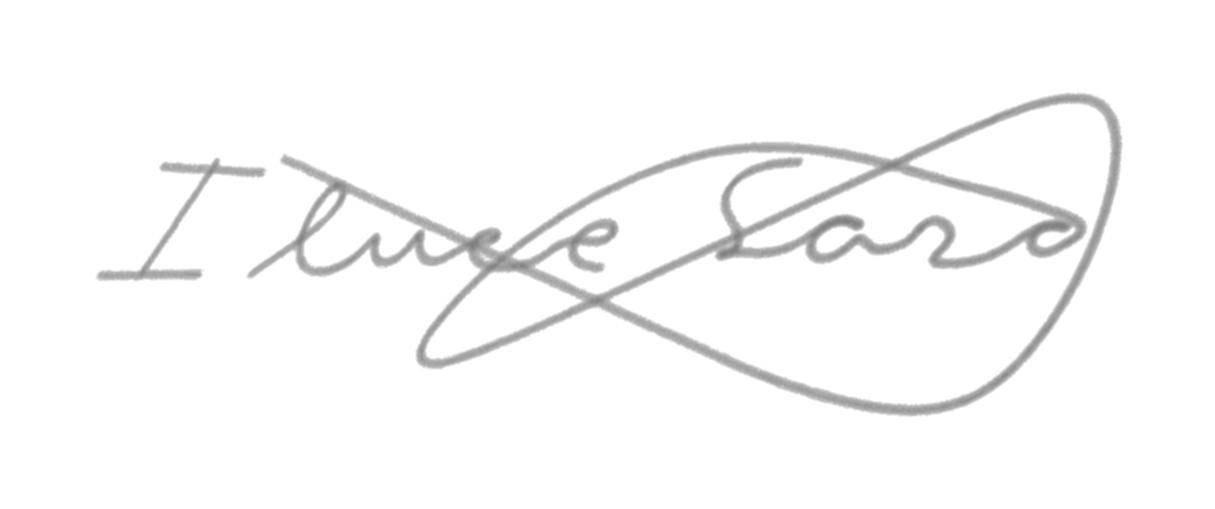 I luce Sara